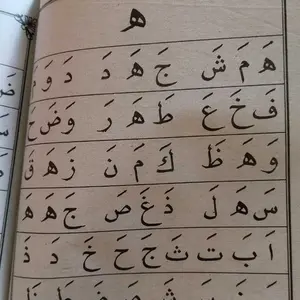 ه
هَ مَ شَ جَ هَ دَ دَ وَ
فَ خَ عَ طَ هَ رَ وَ ضَ حَ
وَ هَ ظَ كَ مَ نَ زَ هَ قَ
سَ هَ لَ ذَ غَ صَ جَ هَ هَ
اَ بَ تَ ثَ جَ حَ خَ دَ ذَ